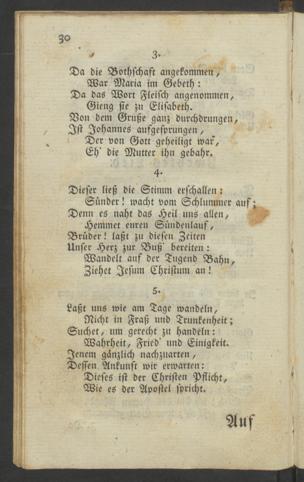 30
3.
Da die Bothschaft angekommen,
War Maria im Gebeth:
Da das Wort Fleisch angenommen,
Gieng sie zu Elisabeth.
Von dem Gruße ganz durchdrungen,
Ist Johannes aufgesprungen,
Der von Gott geheiligt war,
Eh' die Mutter ihn gebahr.
4.
Dieser ließ die Stimm erschallen:
Sünder! wacht vom Schlummer auf;
Denn es naht das Heil uns allen,
Hemmet euren Sündenlauf,
Brüder! laßt zu diesen Zeiten
Unser Herz zur Buß' bereiten:
Wandelt auf der Tugend Bahn,
Ziehet Jesum Christum an!
5.
Laßt uns wie am Tage wandeln,
Nicht in Fraß und Trunkenheit;
Suchet, um gerecht zu handeln:
Wahrheit, Fried' und Einigkeit.
Jenem gänzlich nachzuarten,
Dessen Ankunft wir erwarten:
Dieses ist der Christen Pflicht,
Wie es der Apostel spricht.
Auf